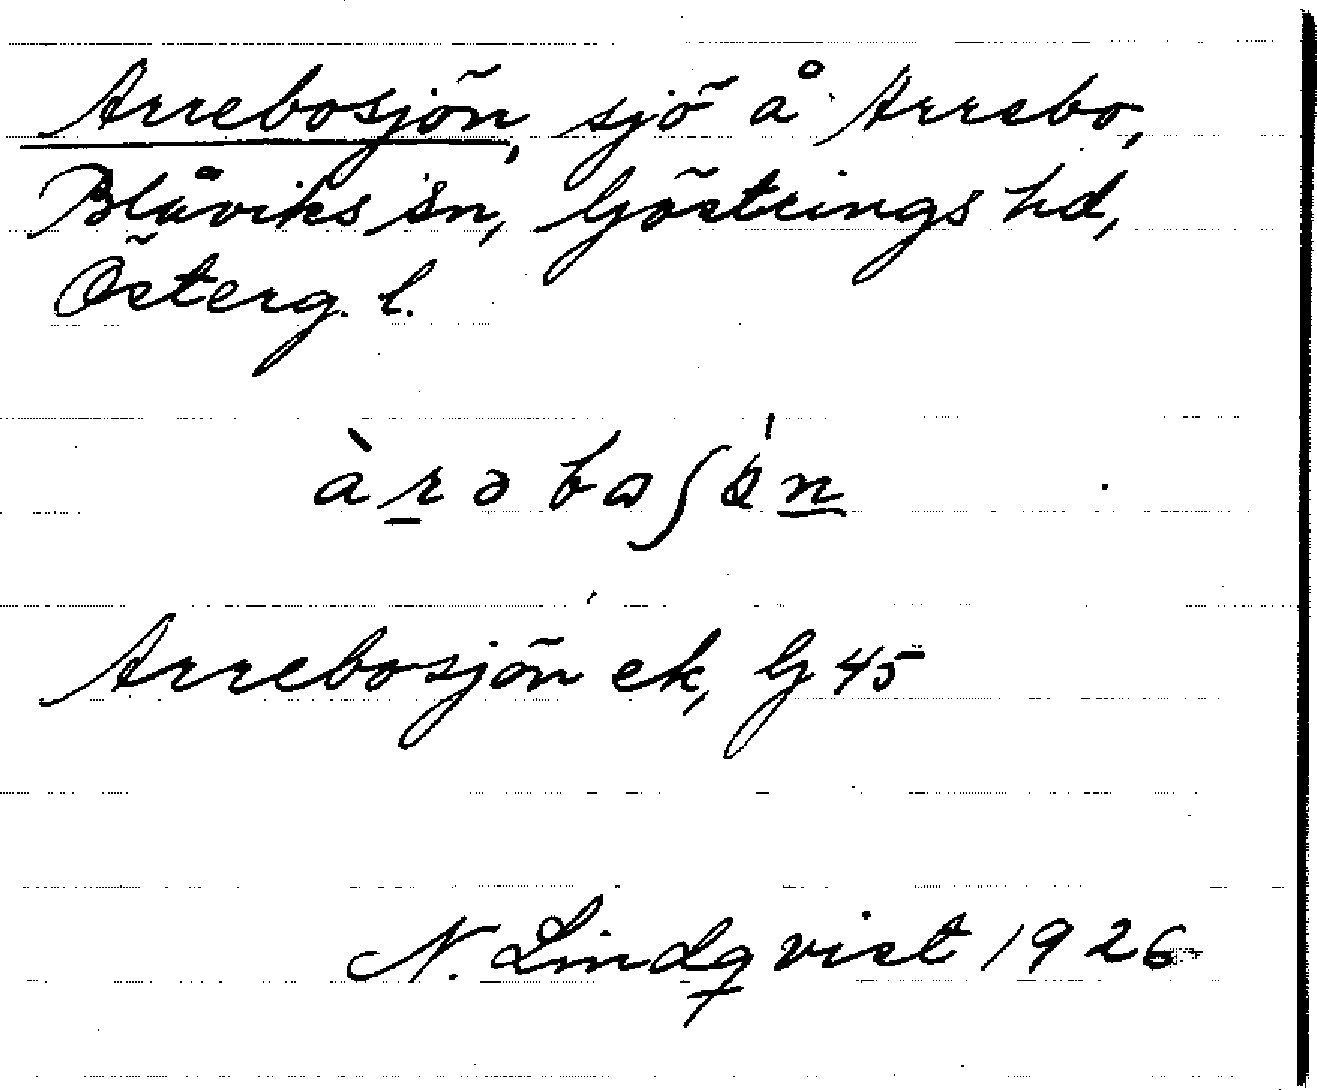 Arrebosjön, sjö å Arrebo,
Blåviks sn, Göstrings hd,
Österg. l.
Arrebosjön ek, G 45
N. Lindqvist 1926